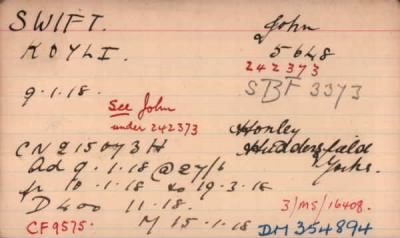 SWIFT. John
KOYLI. 5648
242373
9.1.18. SBF 3373
See John
under 242373
Honley
Huddersfield
Yorks.
CN 215073H
Ad 9.1.18 @ 27/6
fr 10.1.18 to 19.3.18
D400 11.18. 3/MS/16408.
CF9575. M 15.1.18 DM 354894